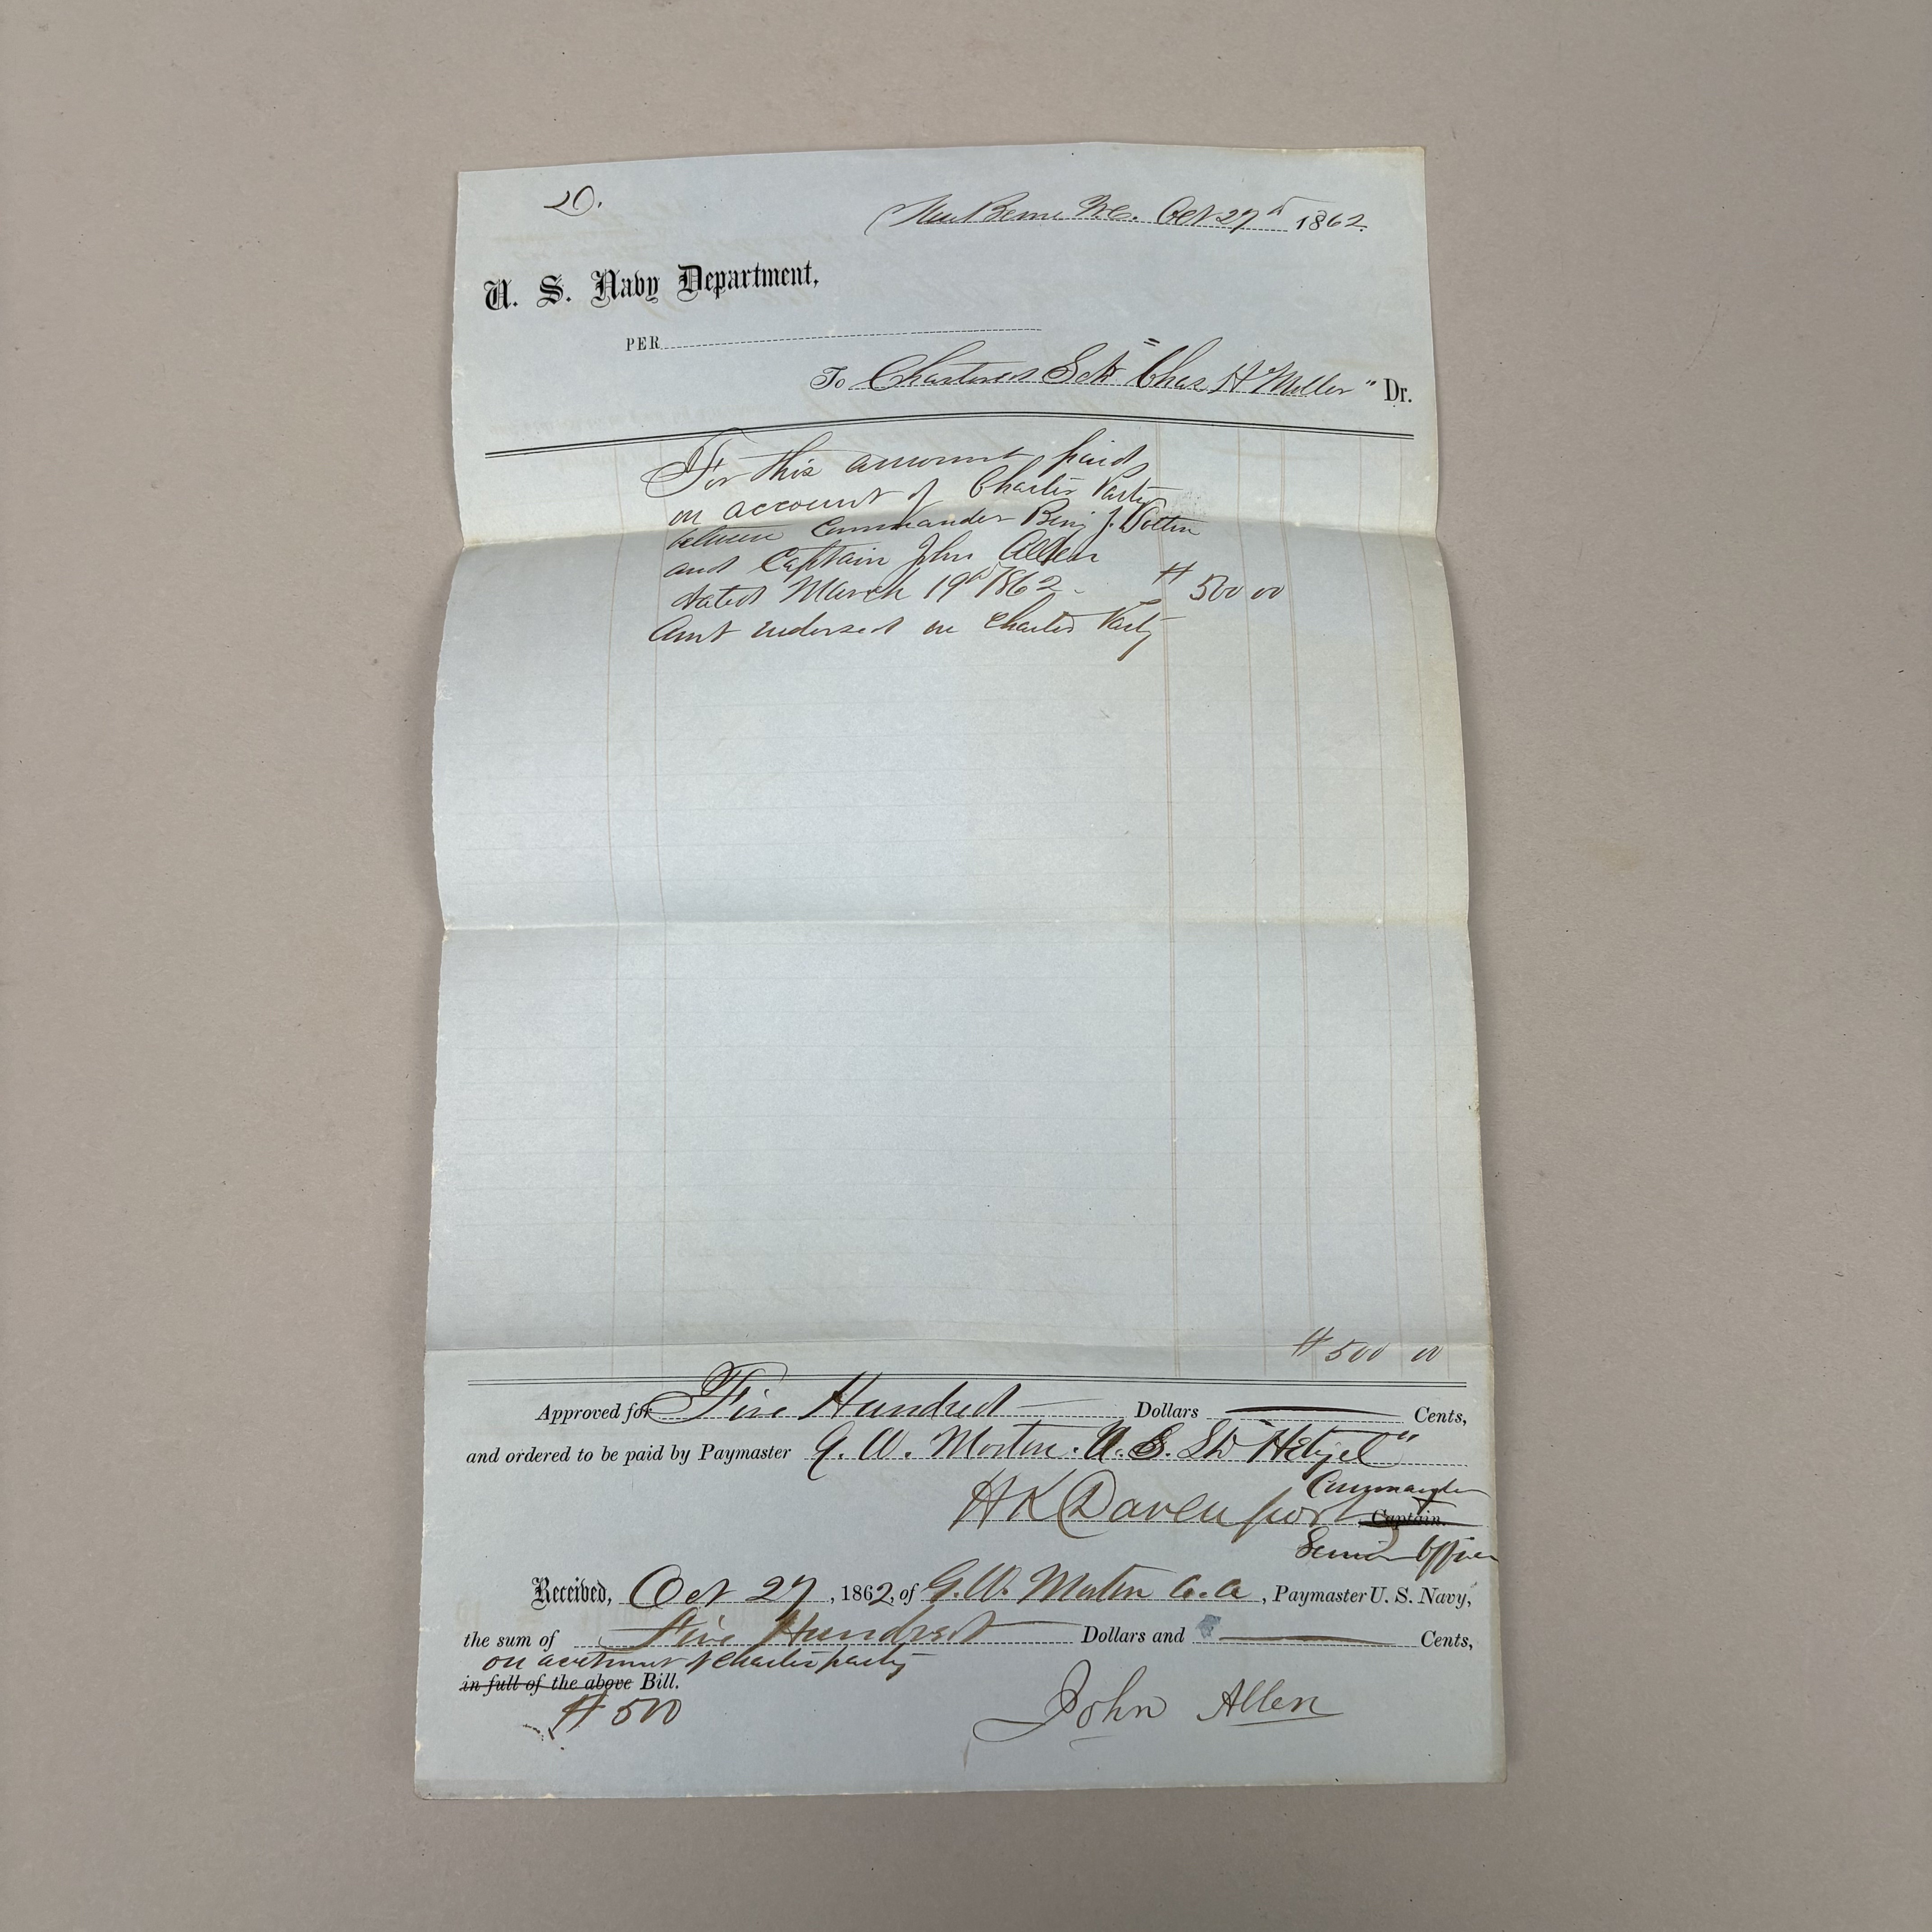 20.
New Berne N.C. Oct 27th 1862.
U. S. Navy Department,
PER
To Chartered Schr "Chas H Miller" Dr.
For this amount paid
on account of Charter Party
between Commander Benj J. Totten
and Captain John Allen
dated March 19th 1862. $500 00
Amt endorsed on Charter Party
$500 00
Approved for Five Hundred Dollars Cents,
and ordered to be paid by Paymaster G. W. Morton. U. S. Str "Hetzel"
Commander
H K Davenport Captain.
Senior Officer
Received, Oct 27, 1862, of G. W. Morton a.a, Paymaster U. S. Navy,
the sum of Five Hundred Dollars and Cents,
on account of Charter party
in full of the above Bill.
$500
John Allen